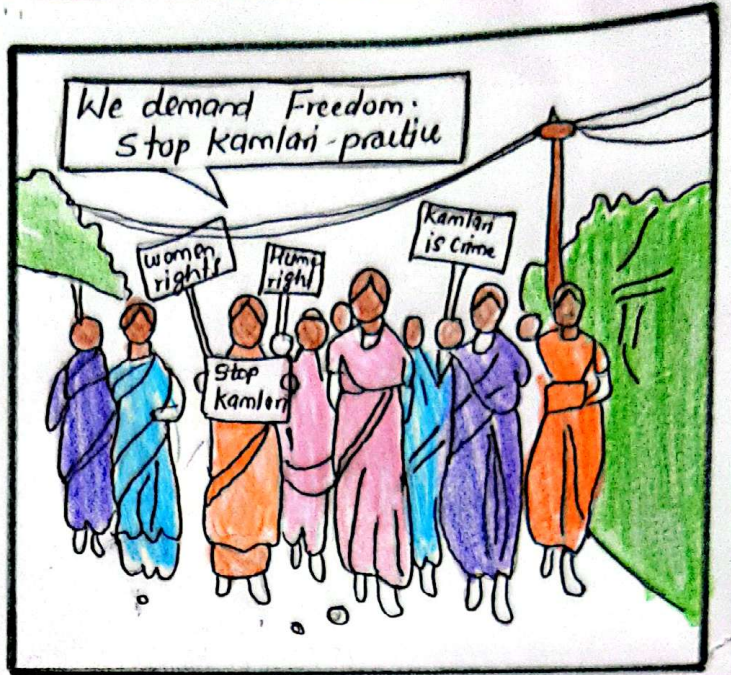 We demand Freedom.
Stop Kamlari-practice
women
rights
Human
right
Kamlari
is crime
Stop
kamlari